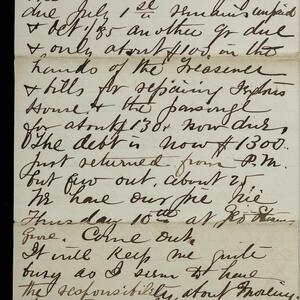 due July 1st remains unpaid
& Oct, 85 another qr due
& only about $100 in the
hands of the Treasurer
& bills for repairing
House, & the parsonge
for about $130 now due,
The debt is now $1300.
Just returned from P.M.
but few out, about 25
We have our pic nic
Thursday 10th at
Grove. Come Out.
It will keep me quite
busy as I seem to have
the responsibility, about